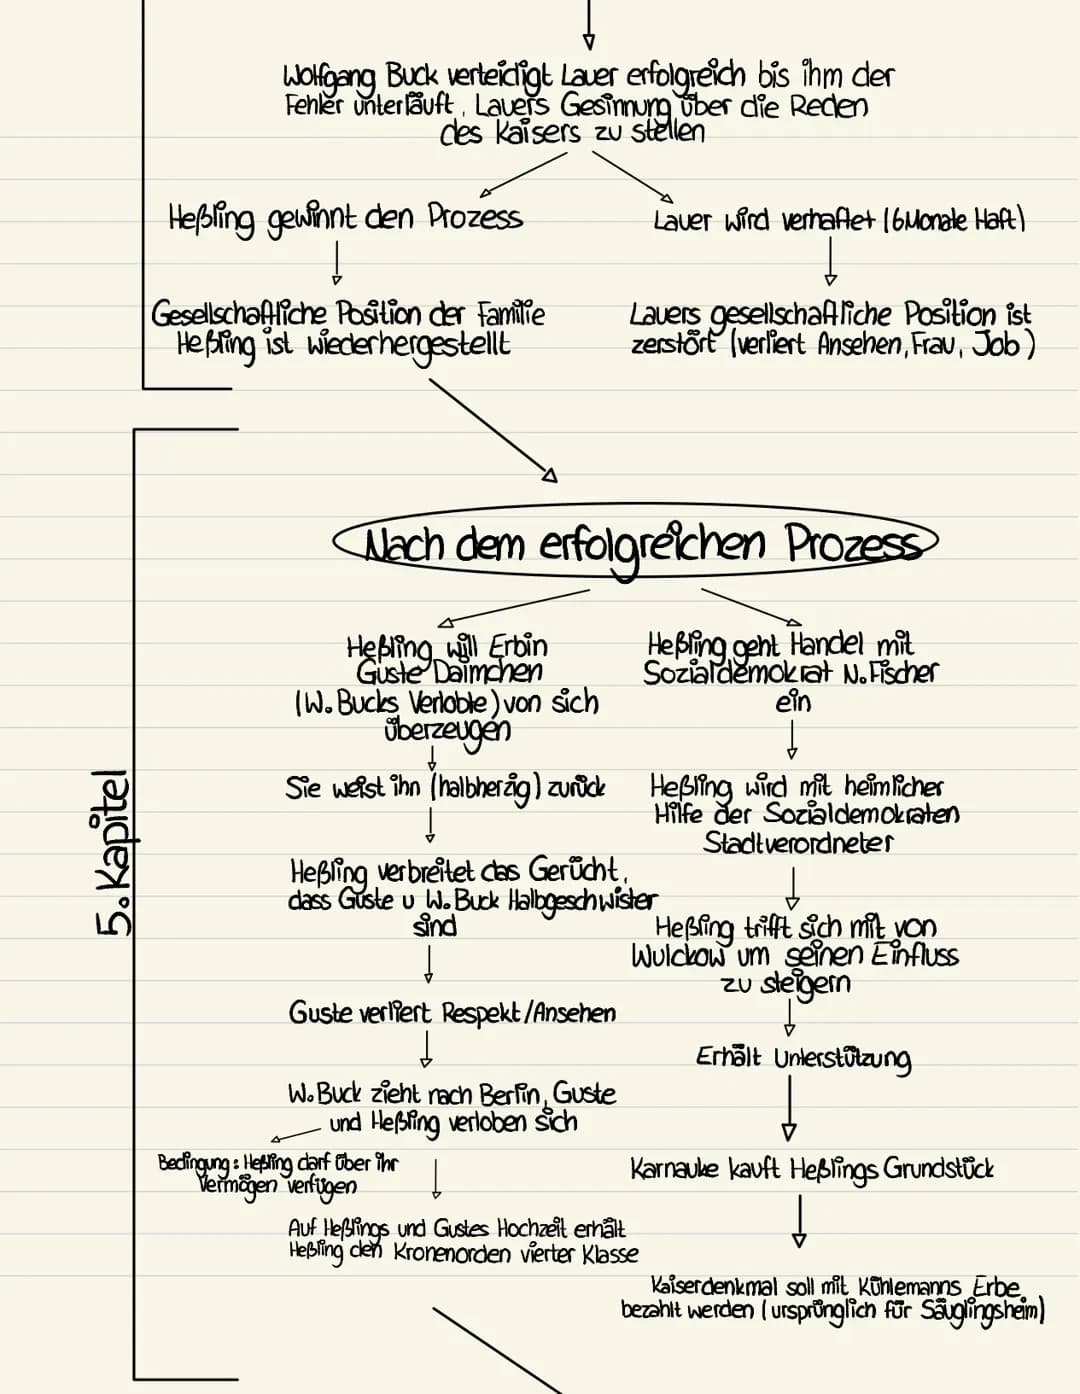 Wolfgang Buck verteidigt Lauer erfolgreich bis ihm der
Fehler unterläuft, Lauers Gesinnung über die Reden
des Kaisers zu stellen
Heßling gewinnt den Prozess
Lauer wird verhaftet (6 Monate Haft)
Gesellschaftliche Position der Familie
Heßling ist wiederhergestellt
Lauers gesellschaftliche Position ist
zerstört (verliert Ansehen, Frau, Job)
5. Kapitel
Nach dem erfolgreichen Prozess
Heßling will Erbin
Guste Daimchen
(W. Bucks Verlobte) von sich
überzeugen
Sie weist ihn (halbherzig) zurück
Heßling verbreitet das Gerücht,
dass Guste u W. Buck Halbgeschwister
sind
Guste verliert Respekt/Ansehen
W. Buck zieht nach Berlin, Guste
und Heßling verloben sich
Bedingung: Heßling darf über ihr
Vermögen verfügen
Auf Heßlings und Gustes Hochzeit erhält
Heßling den Kronenorden vierter Klasse
Heßling geht Handel mit
Sozialdemokrat N. Fischer
ein
Heßling wird mit heimlicher
Hilfe der Sozialdemokraten
Stadtverordneter
Heßling trifft sich mit von
Wulckow um seinen Einfluss
zu steigern
Erhält Unterstützung
Karnauke kauft Heßlings Grundstück
Kaiserdenkmal soll mit Kühlemanns Erbe
bezahlt werden (ursprünglich für Säuglingsheim)